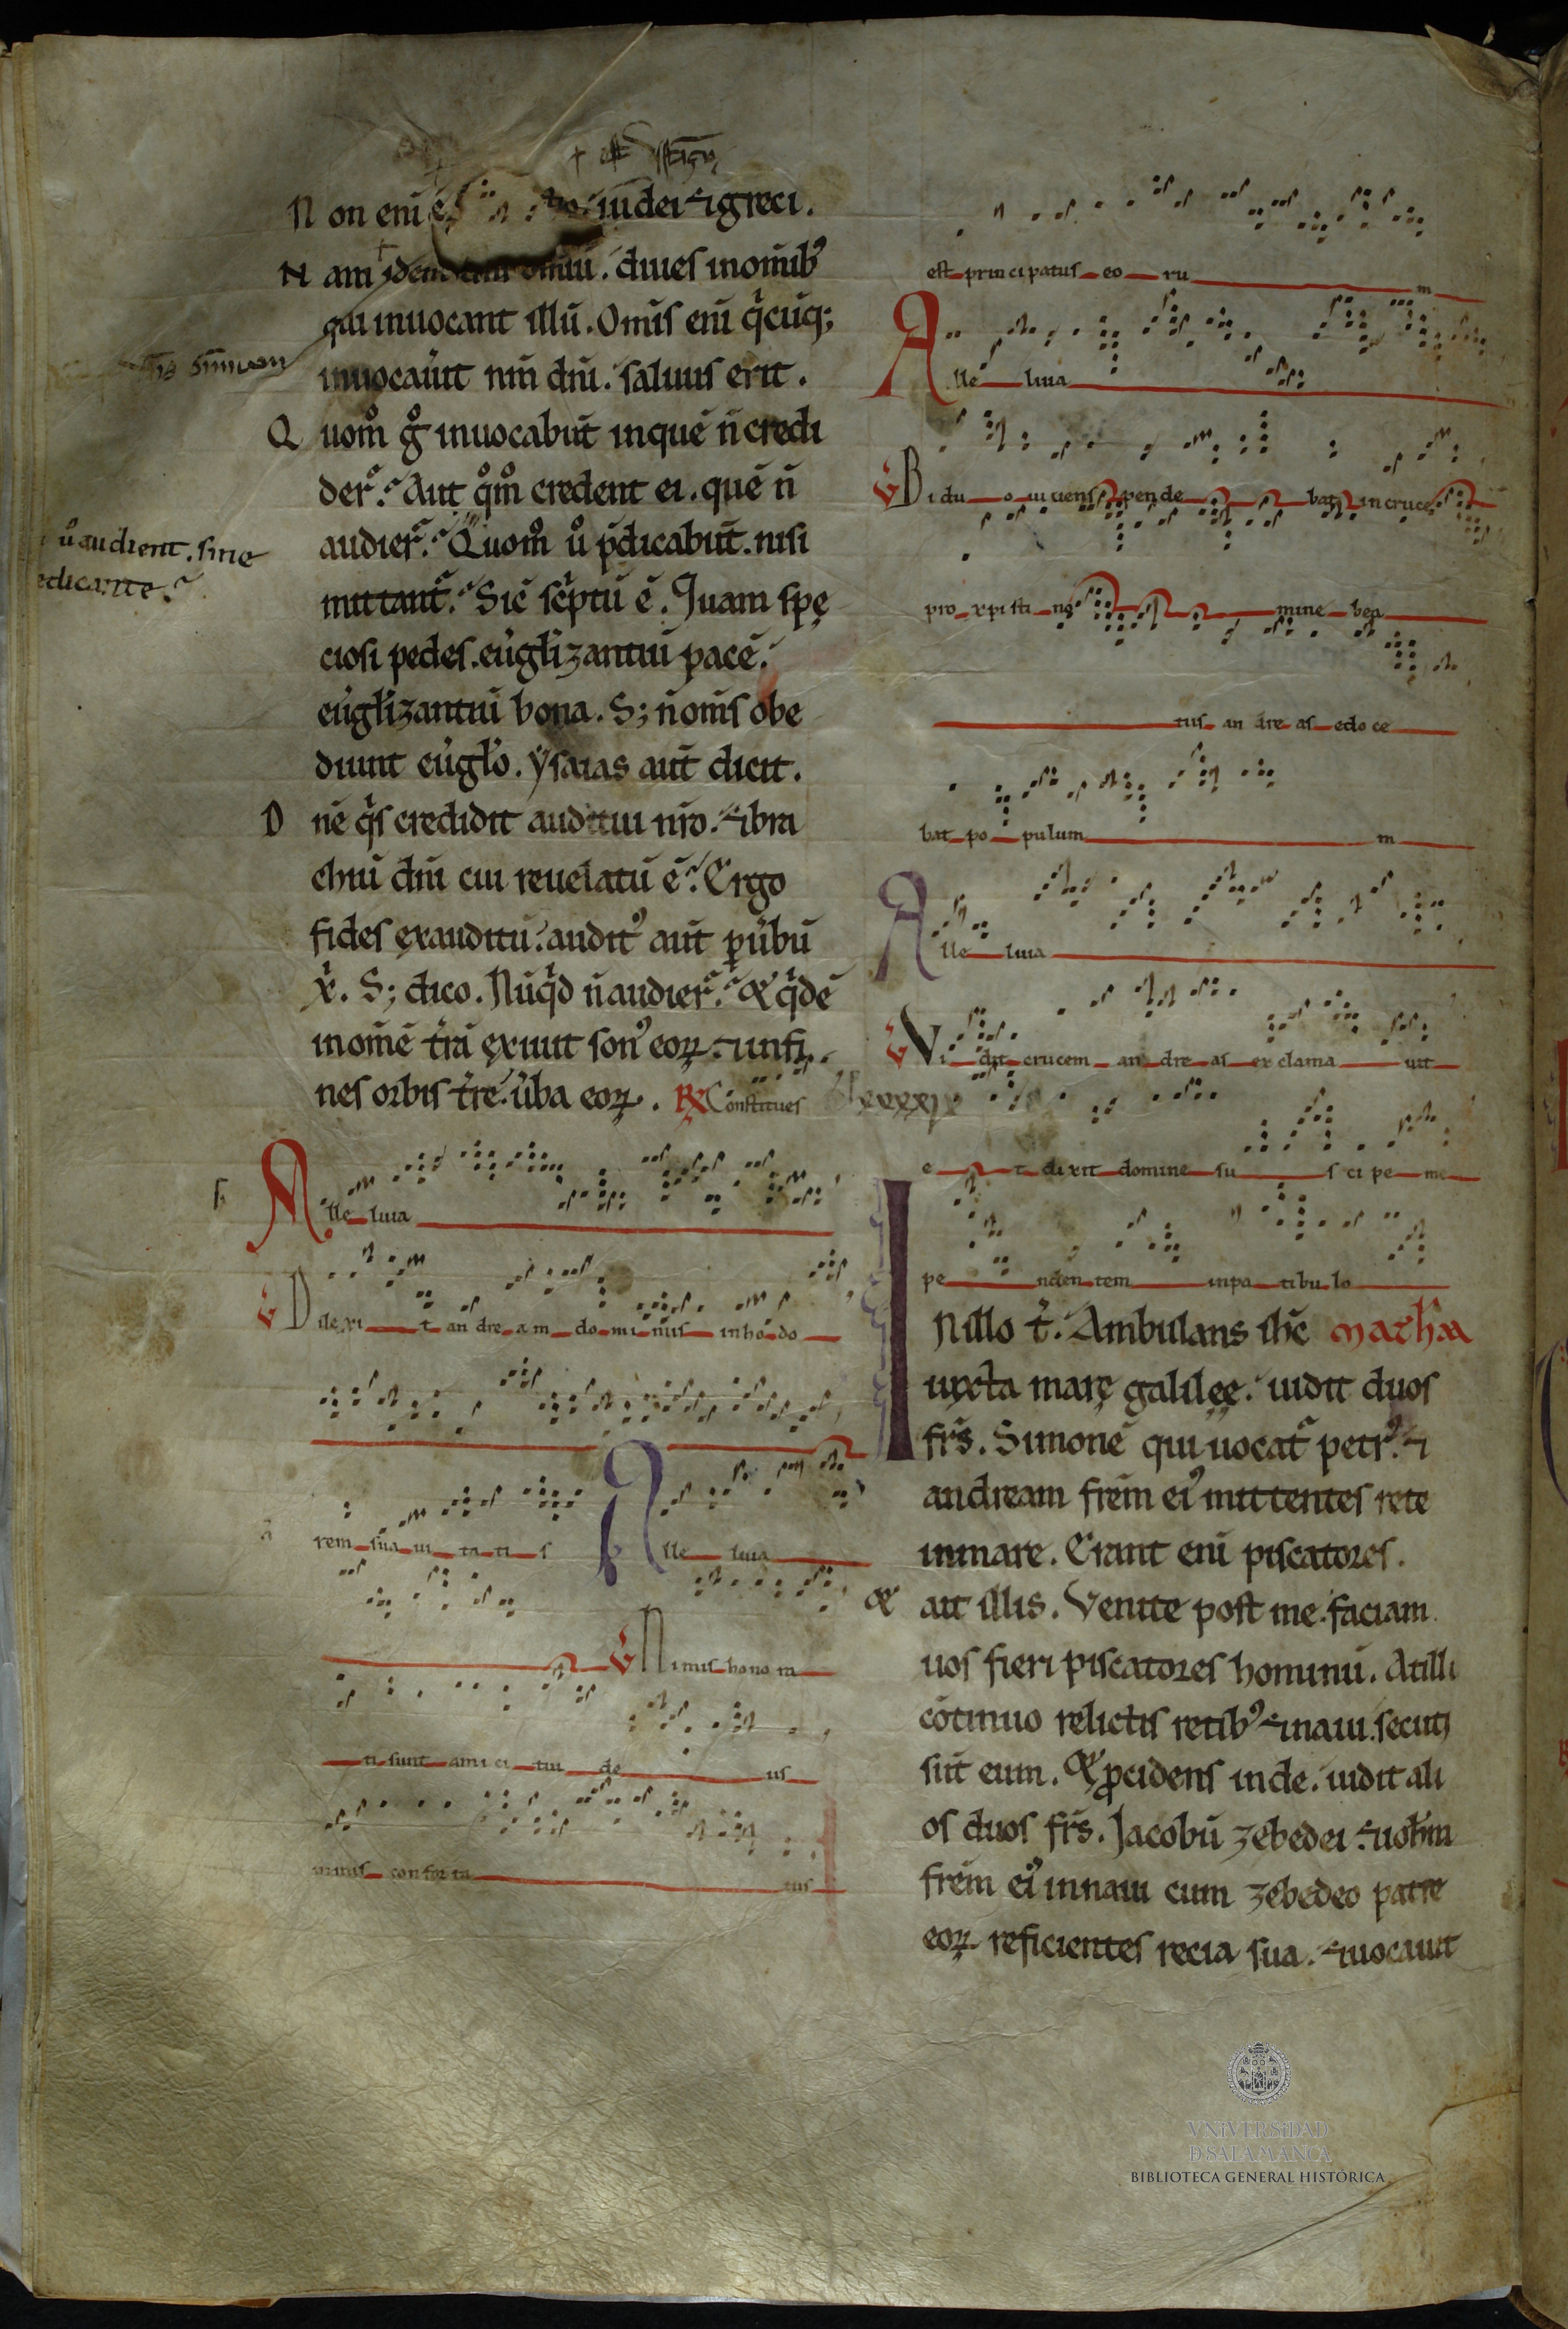 + est distinctio
Non enī ē iudei ⁊ greci.
Nam idem omniū. diues in om̄ib⁹
qui inuocant illū. Om̄is enī q̇cūq;
inuocau̇it nm̄ dn̄i. saluus erit.
Quom̊ g̊ inuocabūt in quē n̄ credi
der̄. Aut q̊m̊ credent ei. quē n̄
audier̄. Quom̊ ů p̄dicabūt. nisi
ů audient. sine
edicante.
mittant̄. Sic̄ sc̓ptū ē. Quam spę
ciosi pedes. eu̇gl̄izantiū pacē.
eu̇gl̄izantiū bona. S; n̄ om̄s obe
diunt eu̇gl̄o. ysaias aut̄ dicit.
Dn̄e q̇s credidit auditui nr̄o. ⁊ bra
chiū dn̄i cui reuelatū ē. Ergo
fides ex auditu. audit⁹ aut̄ p u̇bū
xp̄i. S; dico. Nūq̇d n̄ audier̄. & q̇dē
in om̄ē tr̄ā exiuit son⁹ eoꝝ. ⁊ in fi
nes orbis tr̄e. u̇ba eoꝝ. R̃ Constitues
Alle luia
V̇ Dilexi t an dre a m do mi nus in ho do
rem sua ui ta ti s Alle luia
V̇ Nimis hono ra
ti sunt ami ci tui de us
nimis con for ta tus
est prin ci patus eo ru m
Alle luia
V̇ Bi du o ui uens pen de bat in cruce
pro xpisti no mine bea
tus an dre as & do ce
bat po pulum m
Alle luia
V̇ Vi dit crucem an dre as ex clama uit
e t di xit domine su s ci pe me
pe nden tem in pa tibu lo
In illo t̄. Ambulans ih̄c Matha
iuxta marę galilęę. uidit duos
fr̄s. Simonē qui uocat̄ petr⁹. ⁊
andream frēm ei⁹ mittentes rete
in mare. Erant enī piscatores.
& ait illis. Venite post me. faciam
uos fieri piscatores hominū. At illi
cōtinuo relictis retib⁹ ⁊ naui. secuti
sūt eum. & p̄cidens inde. uidit ali
os duos fr̄s. Jacobū zebedei ⁊ ioh̄m
frēm ei⁹ in naui cum zebedeo patre
eoꝝ reficientes recia sua. ⁊ uocauit
VNiVERSiDAD
D SALAMANCA
BIBLIOTECA GENERAL HISTÓRICA